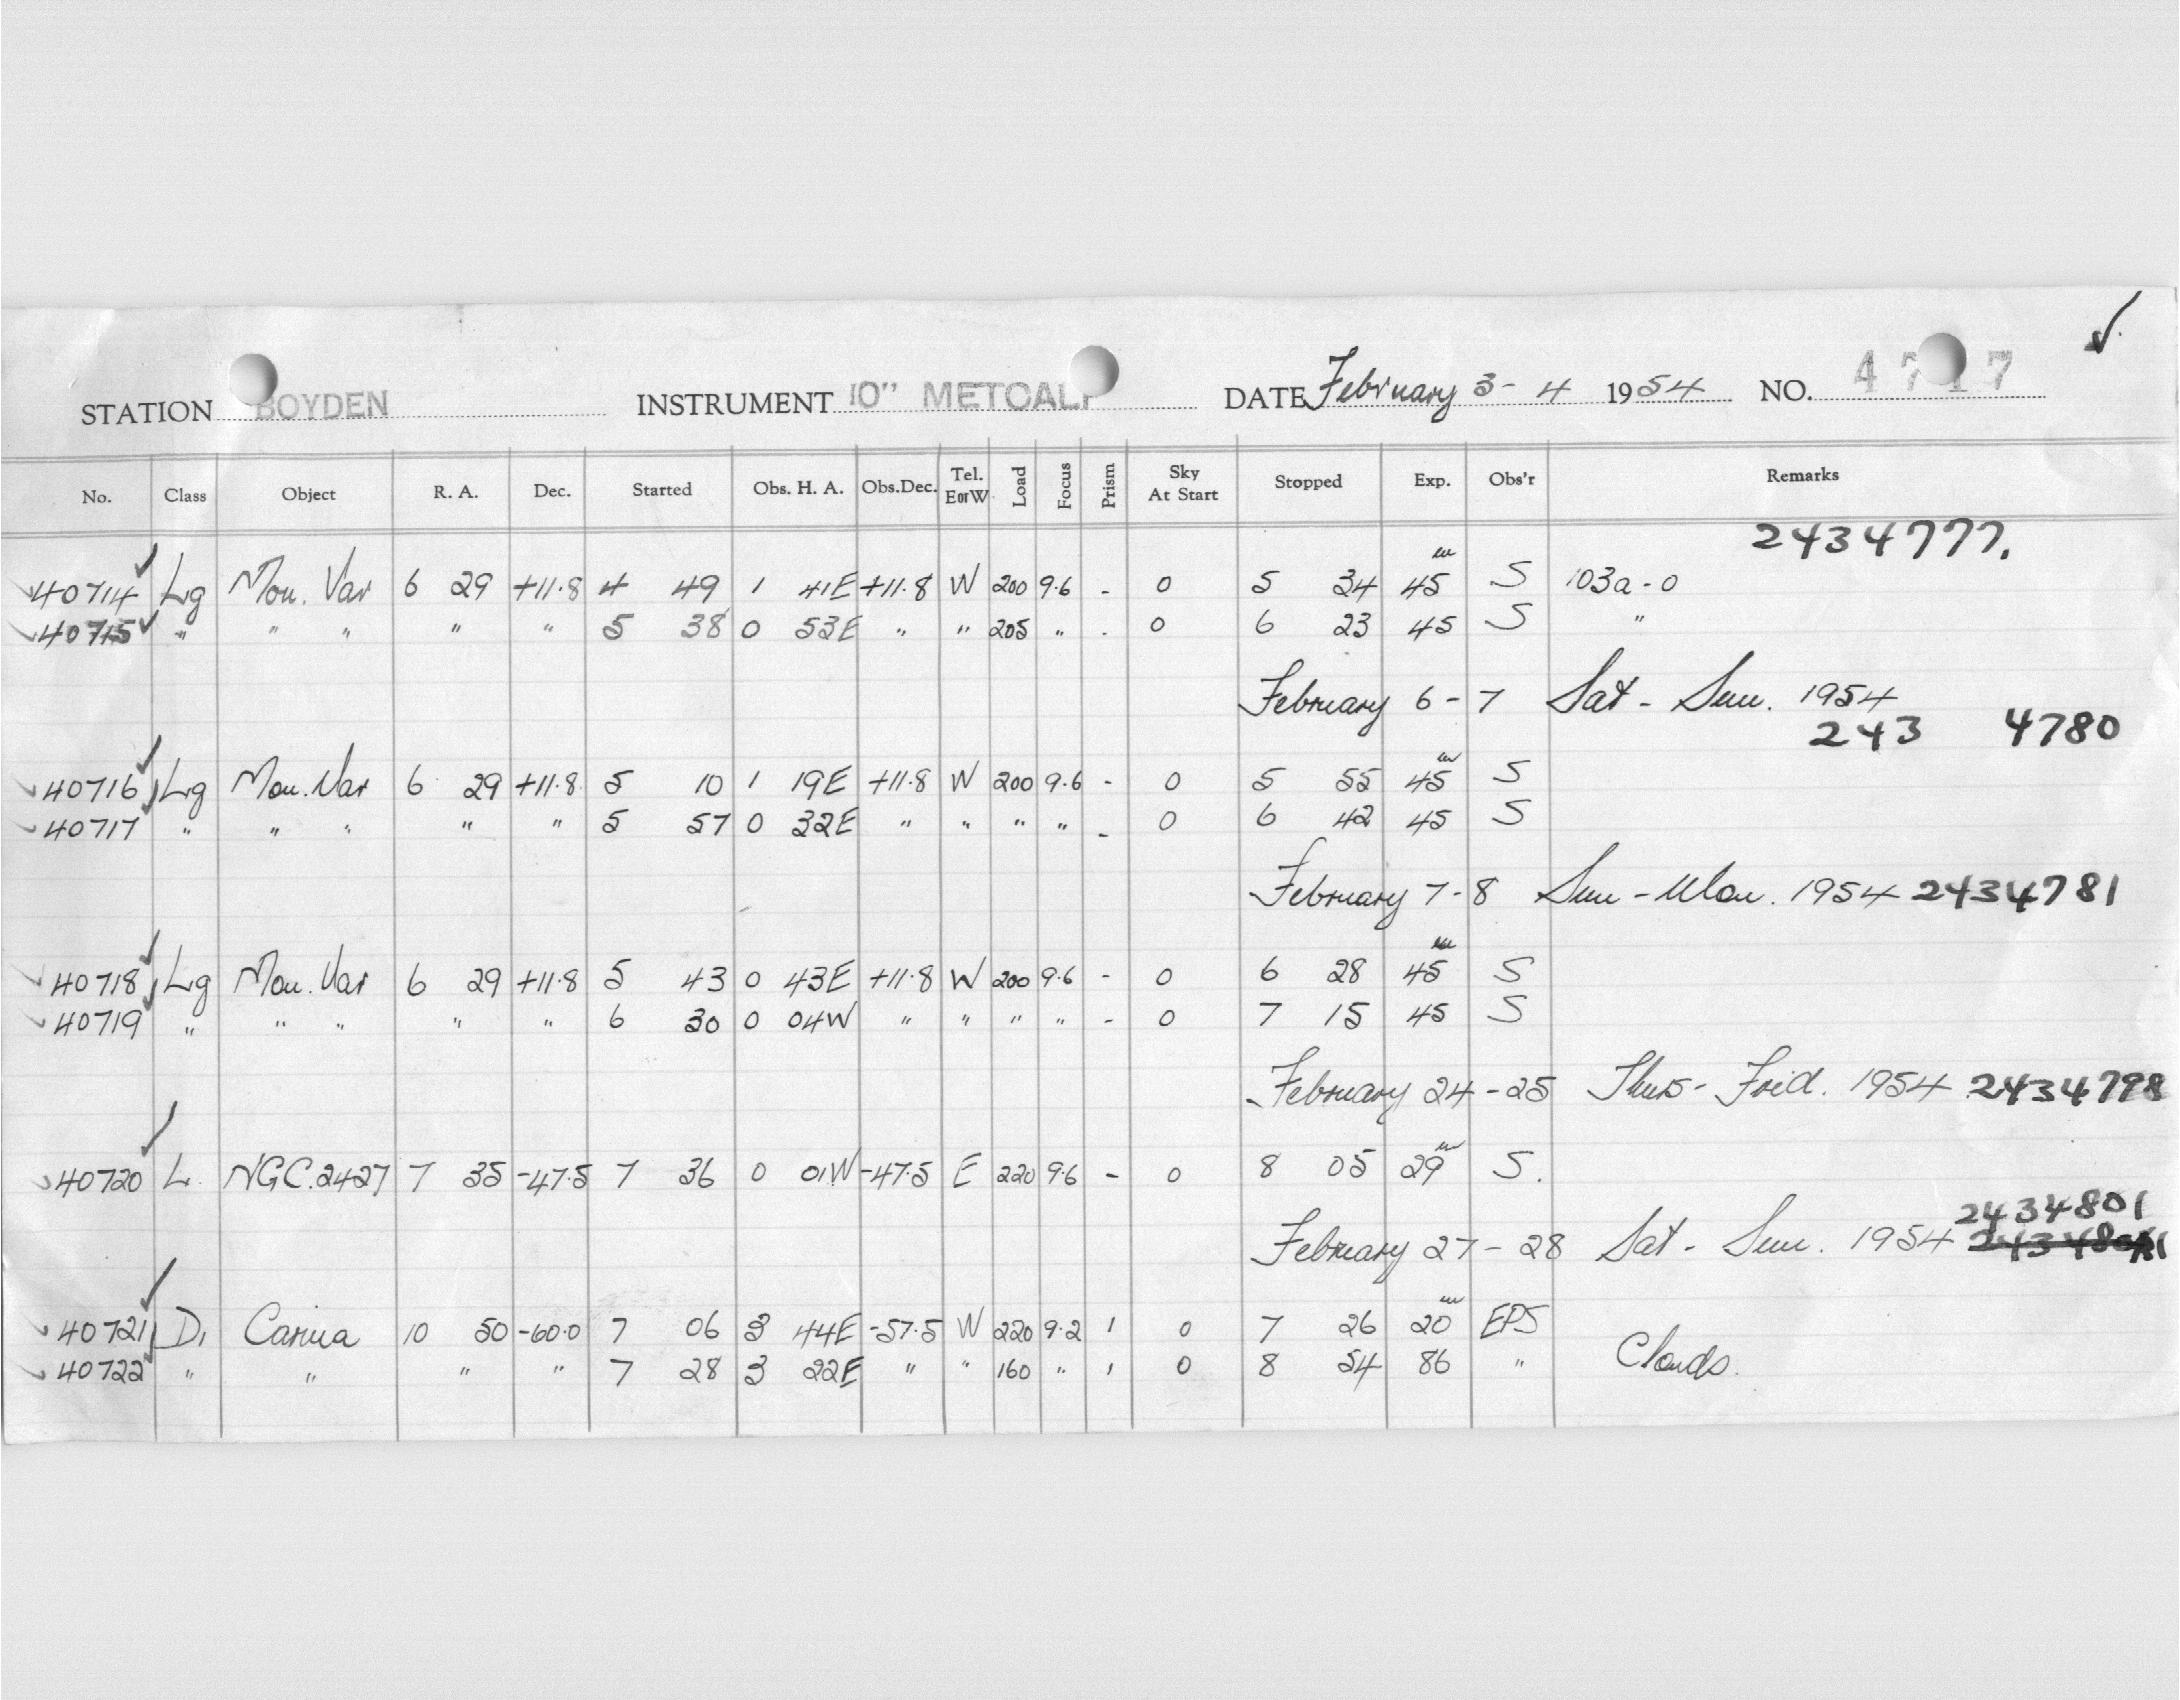 STATION BOYDEN INSTRUMENT 10" METCALF DATE February 3-4 1954 NO. 4717
No. Class Object R. A. Dec. Started Obs. H. A. Obs.Dec. Tel. E or W Load Focus Prism Sky At Start Stopped Exp. Obs'r Remarks
2434777.
40714 Lg Mon. Var 6 29 +11.8 4 49 1 41E +11.8 W 200 9.6 - 0 5 34 45m S 103a-0
40715 " " " " " 5 38 0 53E " " 205 " - 0 6 23 45 S "
February 6-7 Sat - Sun. 1954
243 4780
40716 Lg Mon. Var 6 29 +11.8 5 10 1 19E +11.8 W 200 9.6 - 0 5 55 45m S
40717 " " " " " 5 57 0 32E " " " " - 0 6 42 45 S
February 7-8 Sun - Mon. 1954 2434781
40718 Lg Mon. Var 6 29 +11.8 5 43 0 43E +11.8 W 200 9.6 - 0 6 28 45m S
40719 " " " " " 6 30 0 04W " " " " - 0 7 15 45 S
February 24-25 Thurs - Frid. 1954 2434798
40720 L. NGC.2427 7 35 -47.5 7 36 0 01W -47.5 E 220 9.6 - 0 8 05 29m S.
2434801
February 27-28 Sat - Sun. 1954
40721 D1 Carina 10 50 -60.0 7 06 3 44E -57.5 W 220 9.2 1 0 7 26 20m EPS
40722 " " " " 7 28 3 22E " " 160 " 1 0 8 54 86 " Clouds.